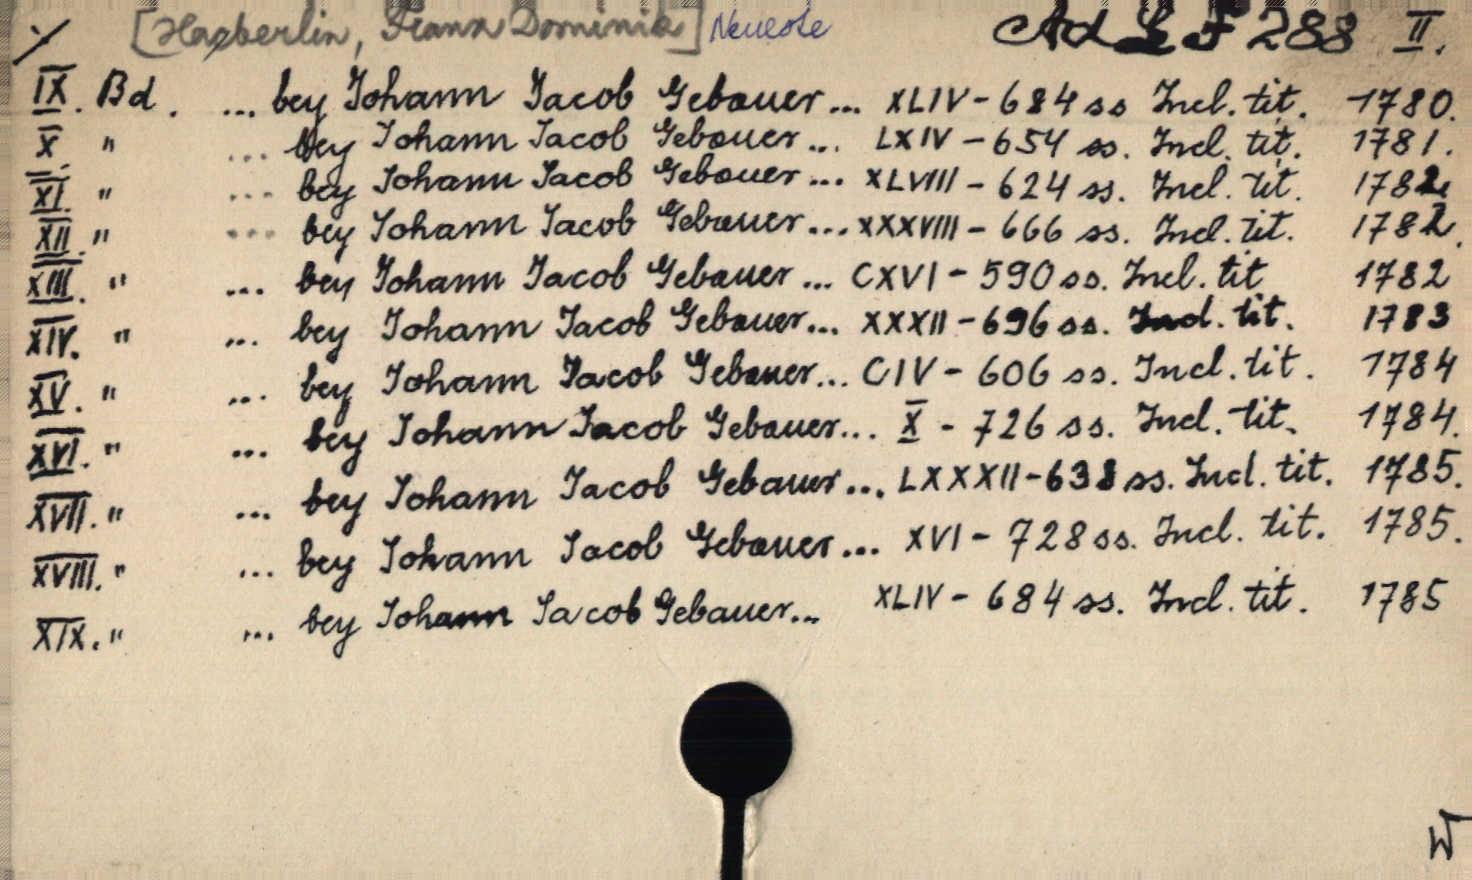 [Haeberlin, Franz Dominik] Neueste Ad L F 288 II.
IX. Bd. ... bey Johann Jacob Gebauer... XLIV - 684 ss Incl. tit. 1780.
X " ... bey Johann Jacob Gebauer... LXIV - 654 ss. Incl. tit. 1781.
XI. " ... bey Johann Jacob Gebauer... XLVIII - 624 ss. Incl. tit. 1782.
XII. " ... bey Johann Jacob Gebauer... XXXVIII - 666 ss. Incl. tit. 1782.
XIII. " ... bey Johann Jacob Gebauer... CXVI - 590 ss. Incl. tit 1782
XIV. " ... bey Johann Jacob Gebauer... XXXII - 696 ss. Incl. tit. 1783
XV. " ... bey Johann Jacob Gebauer... CIV - 606 ss. Incl. tit. 1784
XVI. " ... bey Johann Jacob Gebauer... X - 726 ss. Incl. tit. 1784.
XVII. " ... bey Johann Jacob Gebauer... LXXXII - 638 ss. Incl. tit. 1785.
XVIII. " ... bey Johann Jacob Gebauer... XVI - 728 ss. Incl. tit. 1785.
XIX. " ... bey Johann Jacob Gebauer... XLIV - 684 ss. Incl. tit. 1785
W